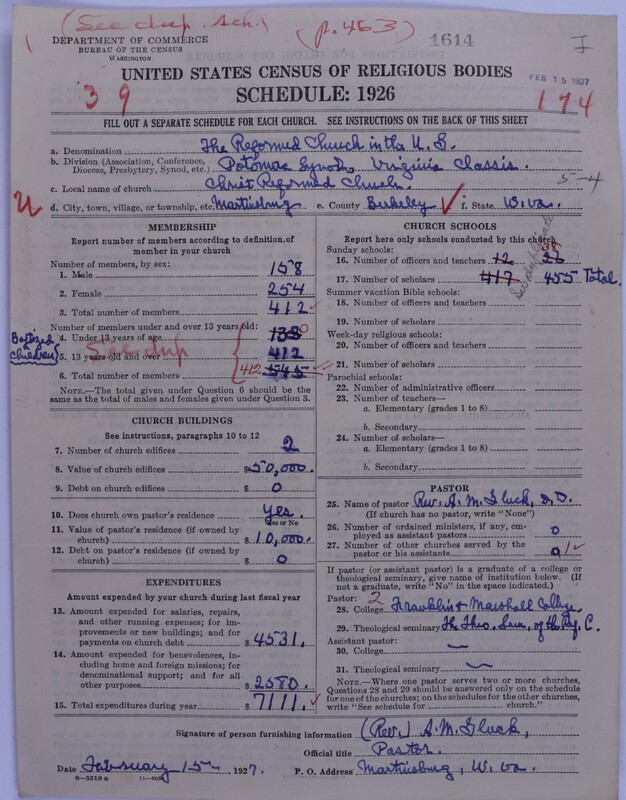 (See dup. sch.) (p. 453) 1614 I
DEPARTMENT OF COMMERCE
BUREAU OF THE CENSUS
WASHINGTON
UNITED STATES CENSUS OF RELIGIOUS BODIES
FEB 15 1927
3 9 SCHEDULE: 1926 174
FILL OUT A SEPARATE SCHEDULE FOR EACH CHURCH. SEE INSTRUCTIONS ON THE BACK OF THIS SHEET
a. Denomination The Reformed Church in the U. S.
b. Division (Association, Conference, Diocese, Presbytery, Synod, etc.) Potomac Synod, Virginia Classis.
c. Local name of church Christ Reformed Church. 5-4
d. City, town, village, or township, etc. Martinsburg e. County Berkeley f. State W. Va.
MEMBERSHIP
Report number of members according to definition of member in your church
Number of members, by sex:
1. Male 158
2. Female 254
3. Total number of members 412
Number of members under and over 13 years old:
Baptized children
4. Under 13 years of age 133 0
See dup
5. 13 years old and over 412
6. Total number of members 412 545
NOTE.—The total given under Question 6 should be the same as the total of males and females given under Question 3.
CHURCH BUILDINGS
See instructions, paragraphs 10 to 12
7. Number of church edifices 2
8. Value of church edifices $50,000.
9. Debt on church edifices $ 0
10. Does church own pastor's residence Yes.
Yes or No
11. Value of pastor's residence (if owned by church) $ 10,000.
12. Debt on pastor's residence (if owned by church) $ 0
EXPENDITURES
Amount expended by your church during last fiscal year
13. Amount expended for salaries, repairs, and other running expenses; for improvements or new buildings; and for payments on church debt $ 4531.
14. Amount expended for benevolences, including home and foreign missions; for denominational support; and for all other purposes $ 2580.
15. Total expenditures during year $ 7111.
CHURCH SCHOOLS
Report here only schools conducted by this church
Sunday schools:
16. Number of officers and teachers 12 26 38
17. Number of scholars 417 455 Total.
Summer vacation Bible schools:
18. Number of officers and teachers
19. Number of scholars
Week-day religious schools:
20. Number of officers and teachers
21. Number of scholars
Parochial schools:
22. Number of administrative officers
23. Number of teachers—
a. Elementary (grades 1 to 8)
b. Secondary
24. Number of scholars—
a. Elementary (grades 1 to 8)
b. Secondary
PASTOR
25. Name of pastor Rev. A. M. Gluck, D. D.
(If church has no pastor, write "None")
26. Number of ordained ministers, if any, employed as assistant pastors 0
27. Number of other churches served by the pastor or his assistants 0 1
If pastor (or assistant pastor) is a graduate of a college or theological seminary, give name of institution below. (If not a graduate, write "No" in the space indicated.)
Pastor: 2
28. College Franklin & Marshall College
29. Theological seminary The Theo. Sem. of the Ref. C.
Assistant pastor:
30. College —
31. Theological seminary —
NOTE.—Where one pastor serves two or more churches, Questions 28 and 29 should be answered only on the schedule for one of the churches; on the schedules for the other churches, write "See schedule for ........ church."
Signature of person furnishing information (Rev.) A. M. Gluck,
Official title Pastor.
Date February 15— 1927. P. O. Address Martinsburg, W. Va.
8-5518 a